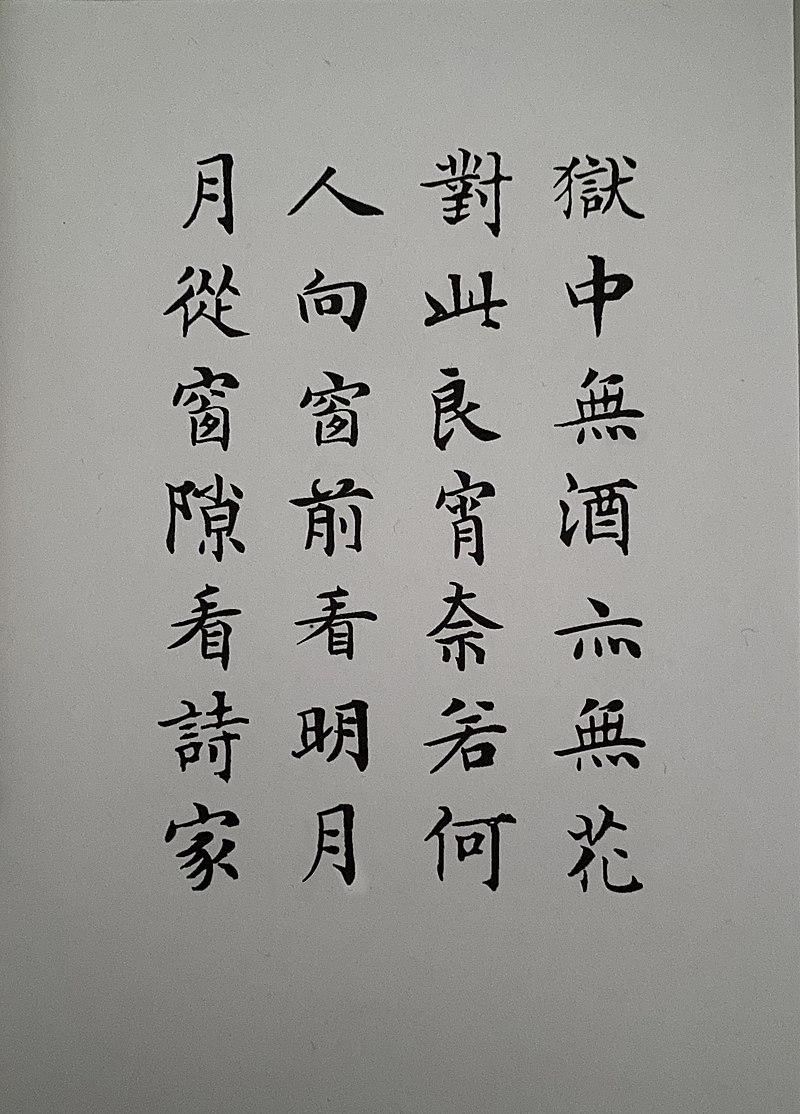 獄中無酒亦無花
對此良宵奈若何
人向窗前看明月
月從窗隙看詩家